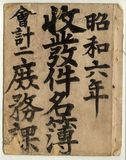 昭和六年
收發件名簿
會計二庶務課